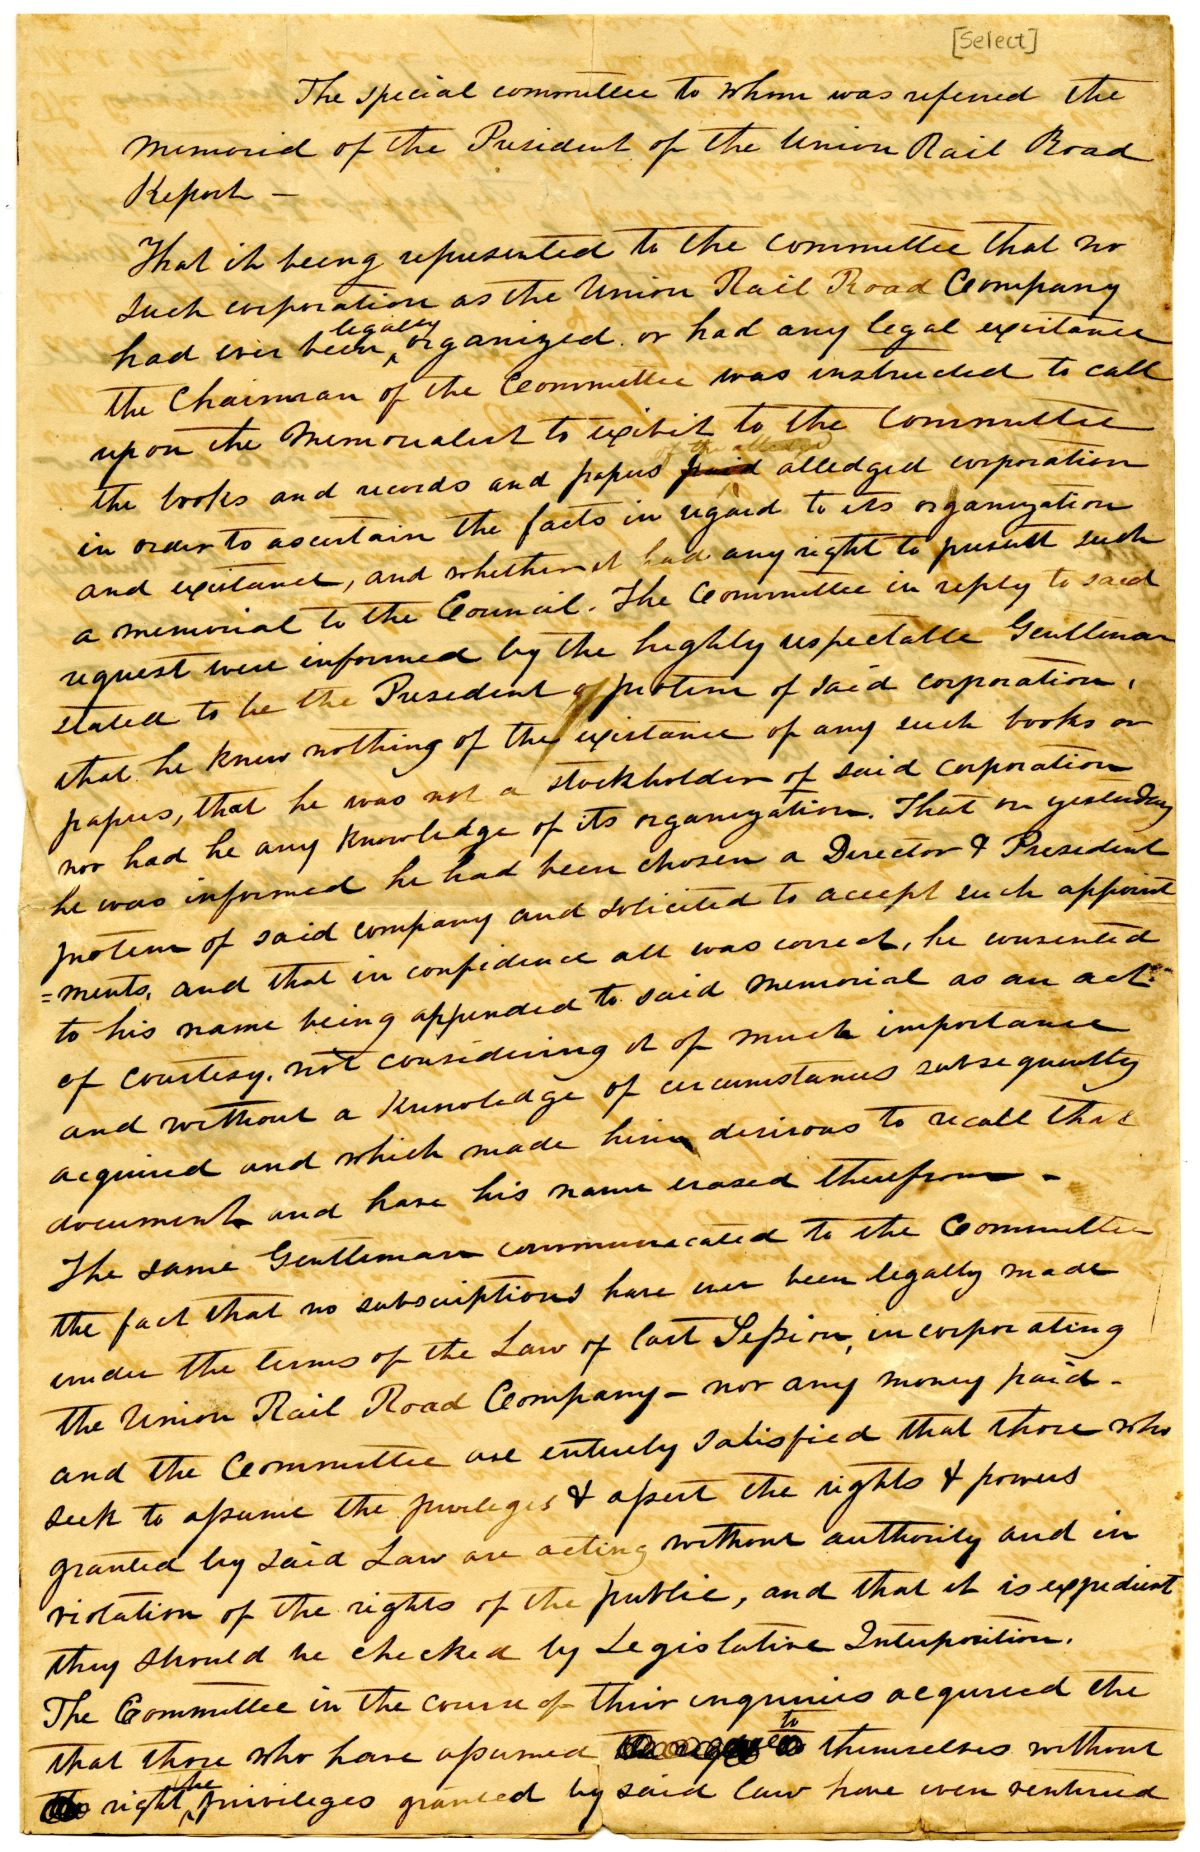 [Select]
The special committee to whom was referred the
memorial of the President of the Union Rail Road
Report –
That it being represented to the committee that no
such corporation as the Union Rail Road Company
had ever been legally organized or had any legal existance
the Chairman of the Committee was instructed to call
upon the Memorialist to exibit to the Committee
the books and records and papers of the alledged corporation
in order to ascertain the facts in regard to its organization
and existance, and whether it had any right to present such
a memorial to the Council. The Committee in reply to said
request were informed by the highly respectable Gentleman
stated to be the President protem of said corporation,
that he knew nothing of the existance of any such books or
papers, that he was not a stockholder of said corporation
nor had he any knowledge of its organization. That on yesterday
he was informed he had been chosen a Director & President
protem of said company and solicited to accept such appoint
=ments, and that in confidence all was correct, he consented
to his name being appended to said memorial as an act
of courtesy, not considering it of much importance
and without a knowledge of circumstances subsequently
acquired and which made him desirous to recall that
document and have his name erased therefrom –
The same Gentleman communicated to the Committee
the fact that no subscriptions have ever been legally made
under the terms of the Law of last Session, incorporating
the Union Rail Road Company – nor any money paid –
and the Committee are entirely satisfied that those who
seek to assume the privileges & assert the rights & powers
granted by said Law are acting without authority and in
violation of the rights of the public, and that it is expedient
they should be checked by Legislative Interposition.
The Committee in the course of their inquiries acquired the
that those who have assumed to themselves without
right the privileges granted by said law have even ventured